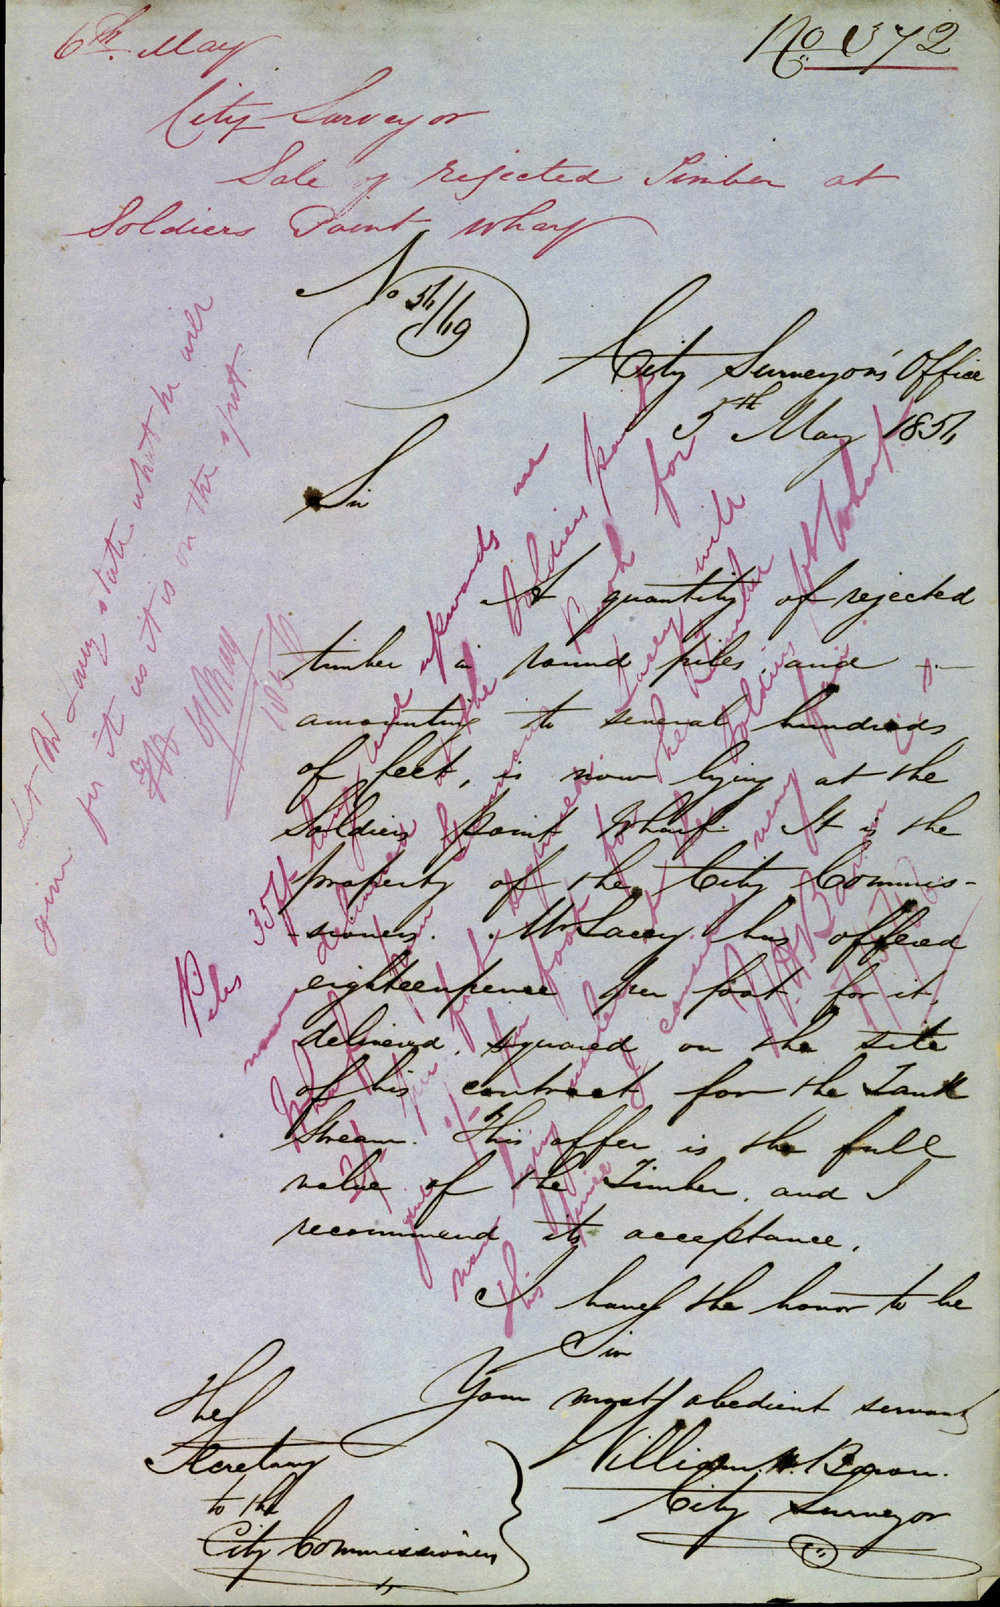 6th May
No 372
City Surveyor
Sale of rejected Timber at
Soldiers Point Wharf
No 54/119
City Surveyor's Office
5th May 1854
Sir
A quantity of rejected
timber in round piles and
amounting to several hundreds
of feet, is now lying at the
Soldiers Point Wharf. It is the
property of the City Commis-
-sioners. Mr Lacey has offered
eighteenpence per foot for it,
delivered, squared on the site
of his contract for the Tank
Stream. This offer is the full
value of the Timber, and I
recommend its acceptance.
I have the honor to be
Sir
Your most obedient servant
William H. Baron.
City Surveyor
The
Secretary
to the
City Commissioners
Let Mr Lacey state what he will
give for it as it is on the spot.
May
1854
Piles 35 ft long and upwards are
now delivered at the Soldiers point
Wharf from
2/ per foot squared
per foot for
Lacey will
now he
has got under Soldiers point Wharf
this price I consider very fair